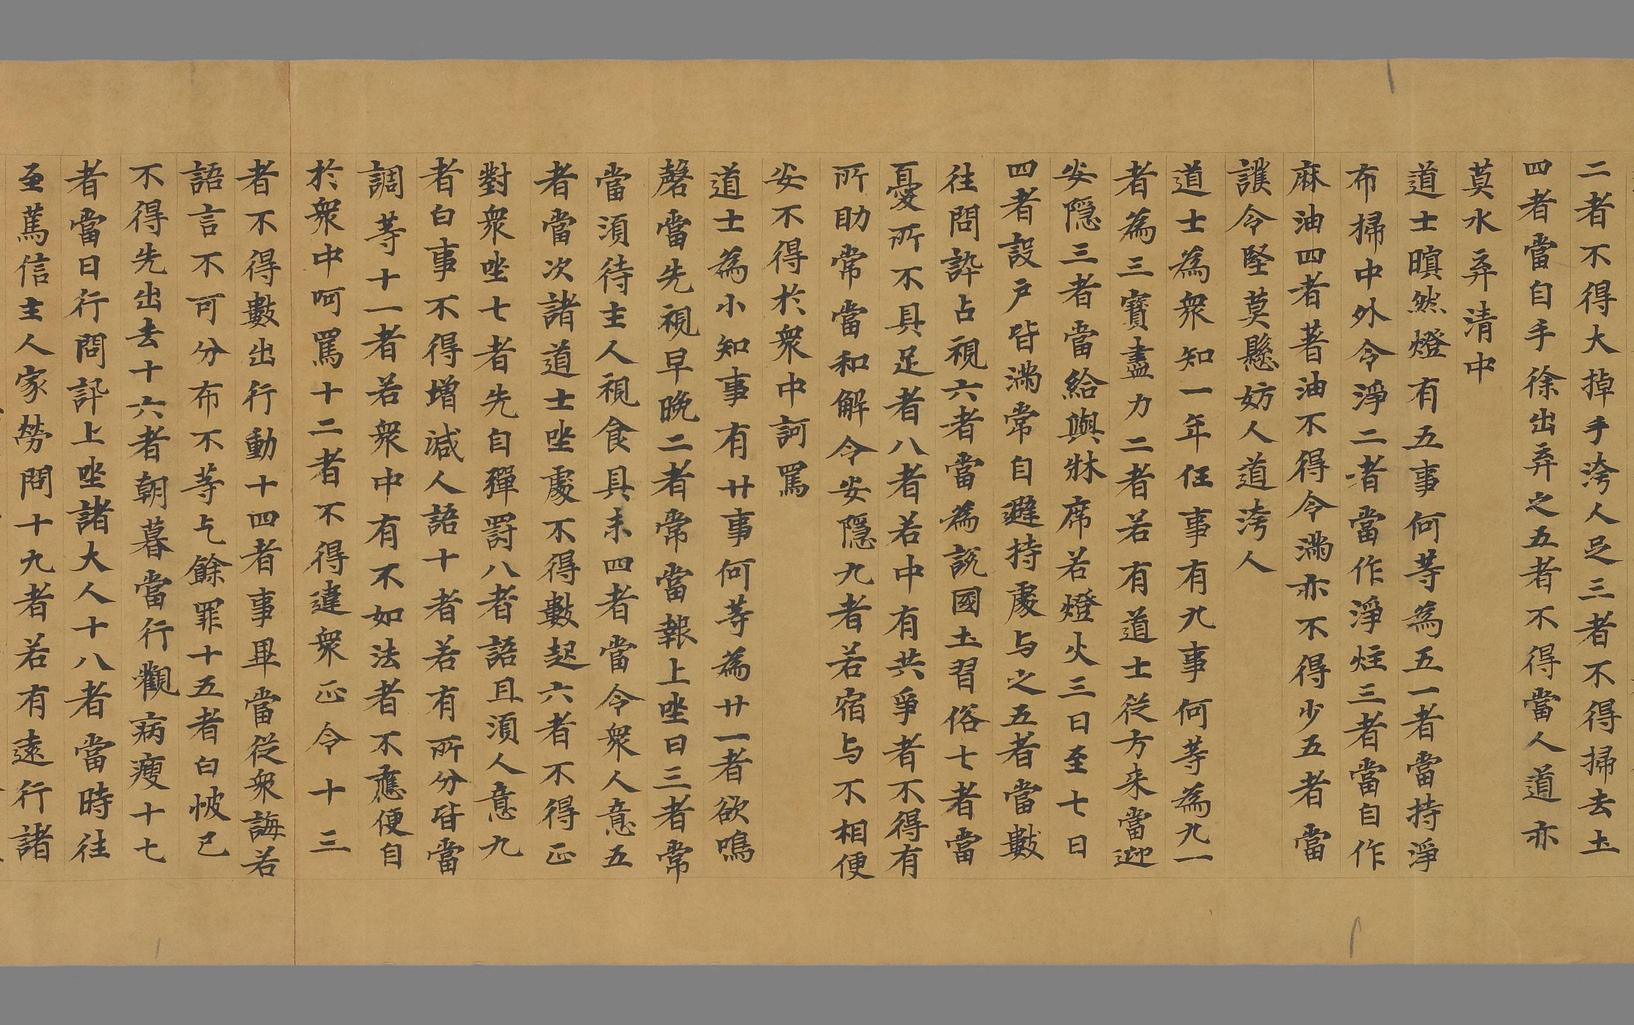 二者不得大掉手洿人足三者不得掃去土
四者當自手徐出弃之五者不得當人道亦
莫水弃清中
道士暝然燈有五事何等為五一者當持淨
布掃中外令淨二者當作淨炷三者當自作
麻油四者著油不得令滿亦不得少五者當
護令堅莫懸妨人道洿人
道士為衆知一年任事有九事何等為九一
者為三寶盡力二者若有道士從方来當迎
安隱三者當給與牀席若燈火三日至七日
四者設戶皆滿常自避持處与之五者當數
往問訊占視六者當為說國土習俗七者當
憂所不具足者八者若中有共爭者不得有
所助常當和解令安隱九者若宿与不相便
安不得於衆中訶罵
道士為小知事有廿事何等為廿一者欲鳴
磬當先視早晚二者常當報上坐曰三者常
當須待主人視食具未四者當令衆人意五
者當次諸道士坐處不得數起六者不得正
對衆坐七者先自彈罸八者語且須人意九
者白事不得增減人語十者若有所分皆當
調等十一者若衆中有不如法者不應便自
於衆中呵罵十二者不得違衆正令十三
者不得數出行動十四者事畢當從衆誨若
語言不可分布不等与餘罪十五者白帔已
不得先出去十六者朝暮當行觀病瘦十七
者當日行問訊上坐諸大人十八者當時往
至篤信主人家勞問十九者若有遠行諸